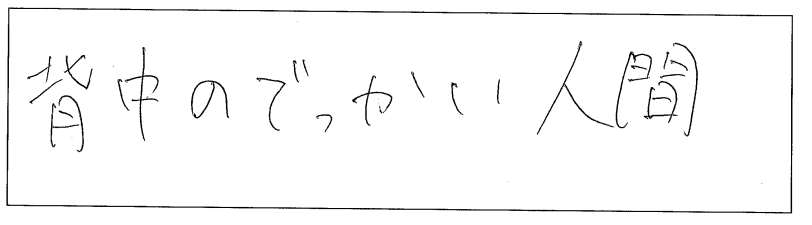 背中のでっかい人間